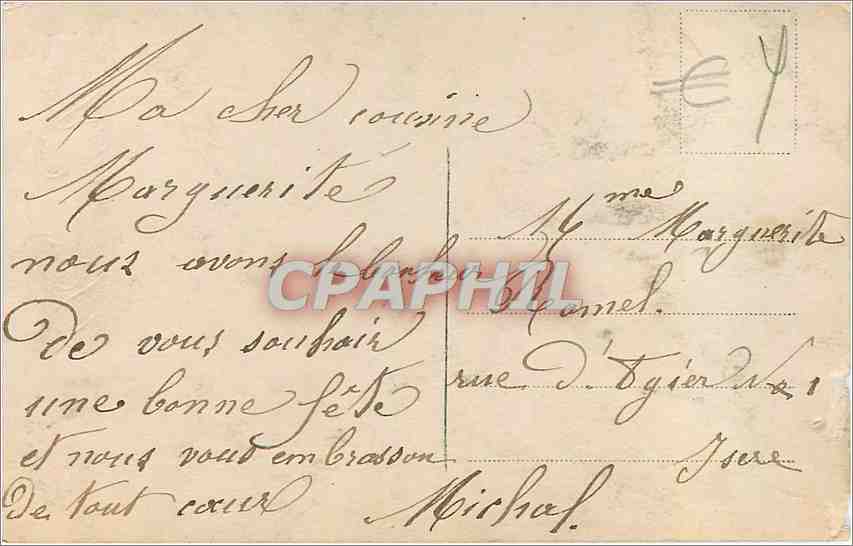 Ma cher cousine
Marguerité
nous avons le bonheur
de vous souhair
une bonne fête
et nous vous embrasson
de tout cœur
Michal.
Mme Marguerite
Ramel.
rue d'Agier No 1
Isere
CPAPHIL
€ 4